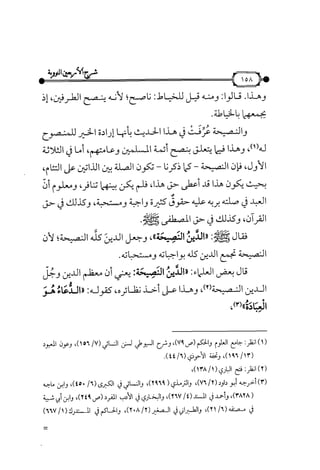 شرح الأربعين النووية
١٥٨
وهذا. قالوا: ومنه قيل للخياط: ناصح؛ لأنه ينصح الطرفين، إذ
يجمعهما بالخياطة.
والنصيحة عُرِّفَتْ في هذا الحديث بأنها إرادة الخير للمنصوح
له(١)، وهذا فيما يتعلق بنصح أئمة المسلمين وعامتهم، أما في الثلاثة
الأول، فإن النصيحة - كما ذكرنا - تكون الصلة بين الذاتين على التئام،
بحيث يكون هذا قد أعطى حق هذا، فلم يكن بينهما تنافر، ومعلوم أنّ
العبد في صلته بربه عليه حقوقٌ كثيرة واجبة ومستحبة، وكذلك في حق
القرآن، وكذلك في حق المصطفى ﷺ.
فقال ﷺ: «الدِّينُ النَّصِيحَةُ»، وجعل الدين كلَّه النصيحة؛ لأن
النصيحة تجمع الدين كله بواجباته ومستحباته.
قال بعض العلماء: «الدِّينُ النَّصِيحَةُ: يعني أن معظم الدين وجُلَّ
الدين النصيحة(٢)، وهذا على أخذ نظائره، كقوله: «الدُّعَاءُ هُوَ
الْعِبَادَةُ»(٣)،
(١) انظر: جامع العلوم والحكم (ص٧٩)، وشرح السيوطي لسنن النسائي (٧/ ١٥٦)، وعون المعبود
(١٣/ ١٩٦)، وتحفة الأحوذي (٦/ ٤٤).
(٢) انظر: فتح الباري (١/ ١٣٨)،
(٣) أخرجه أبو داود (٢/ ٧٦)، والترمذي (٢٩٦٩)، والنسائي في الكبرى (٦/ ٤٥٠)، وابن ماجه
(٣٨٢٨)، وأحمد في المسند (٤/ ٢٦٧)، والبخاري في الأدب المفرد (ص٢٤٩)، وابن أبي شيبة
في مصنفه (٦/ ٢١)، والطبراني في الصغير (٢/ ٢٠٨)، والحاكم في المستدرك (١/ ٦٦٧)
=